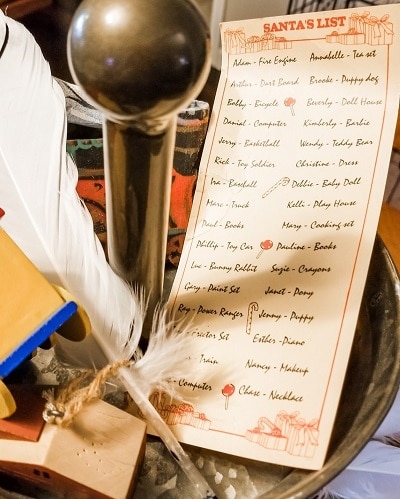 SANTA'S LIST
Adam - Fire Engine Annabelle - Tea set
Arthur - Dart Board Brooke - Puppy dog
Bobby - Bicycle Beverly - Doll House
Danial - Computer Kimberly - Barbie
Jerry - Basketball Wendy - Teddy Bear
Rick - Toy Soldier Christine - Dress
Ira - Baseball Debbie - Baby Doll
Marc - Truck Kelli - Play House
Paul - Books Mary - Cooking set
Phillip - Toy Car Pauline - Books
Luc - Bunny Rabbit Suzie - Crayons
Gary - Paint Set Janet - Pony
Ray - Power Ranger Jenny - Puppy
- Erector Set Esther - Piano
Train Nancy - Makeup
- Computer Chase - Necklace